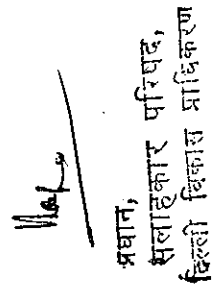 प्रधान,
सलाहकार परिषद,
दिल्ली विकास प्राधिकरण